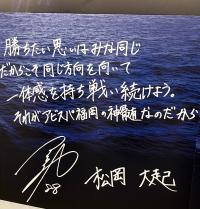 勝ちたい思いはみな同じ
だからこそ同じ方向を向いて
一体感を持ち戦い続けよう。
それがアビスパ福岡の神髄なのだから
28
松岡 大起